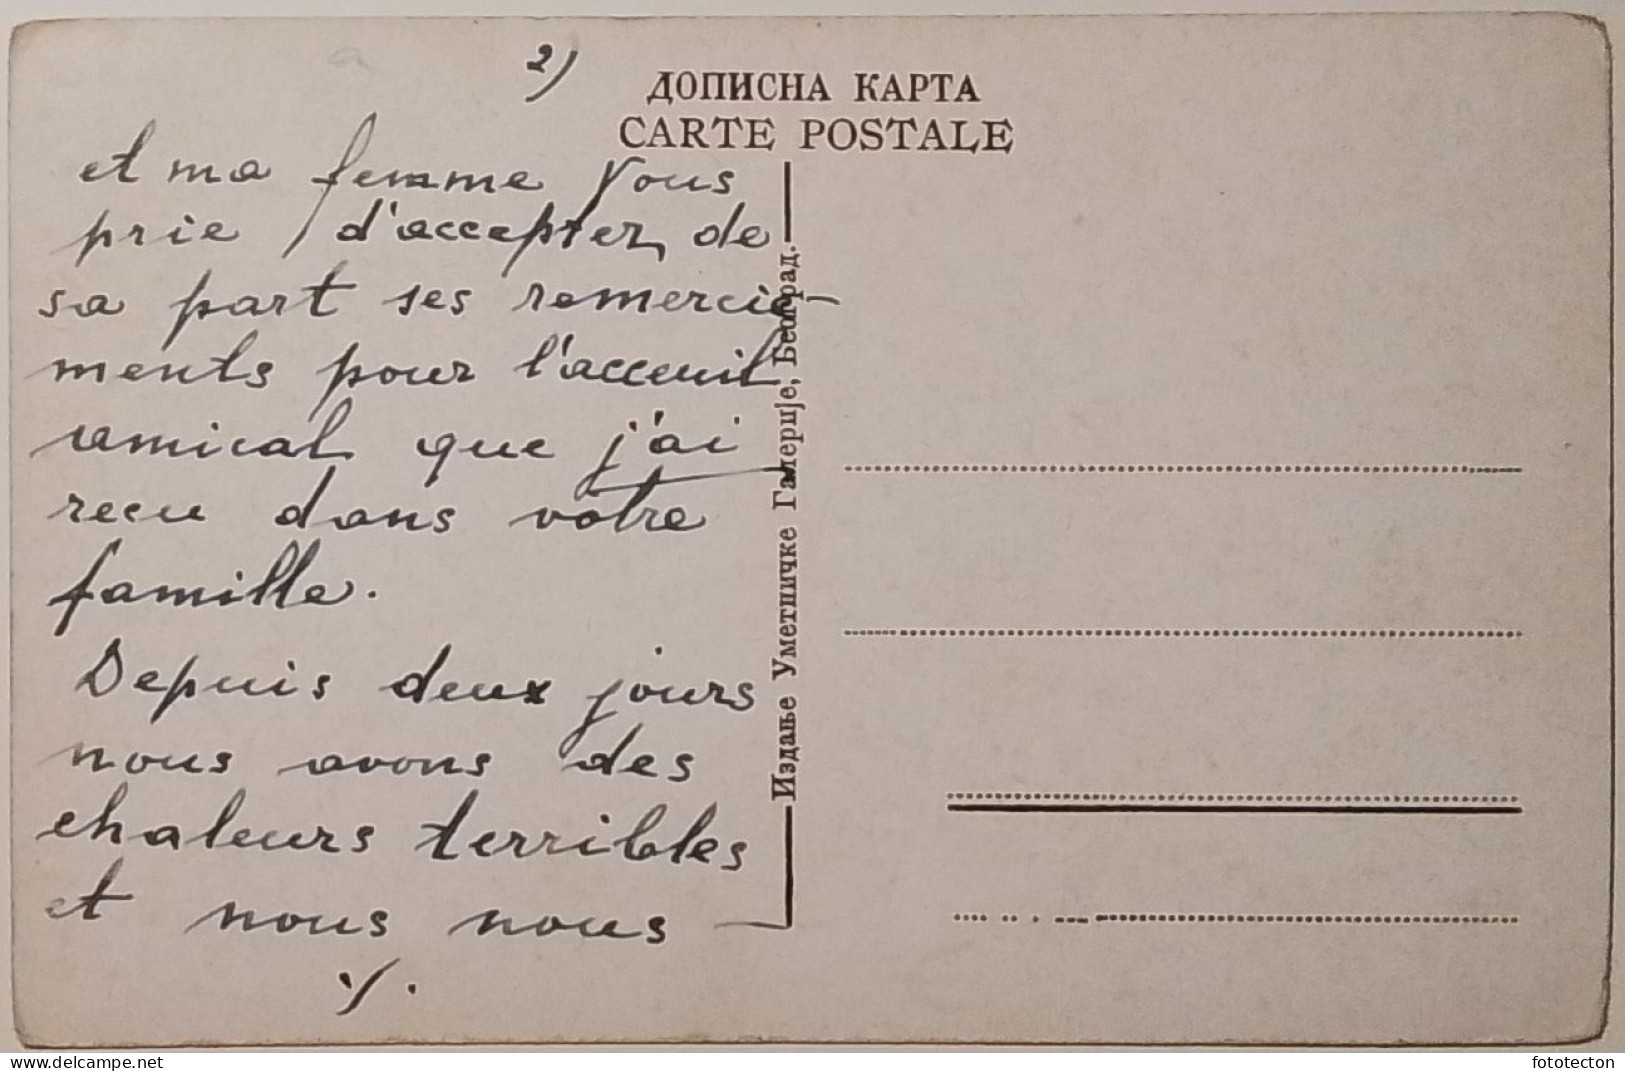 2)
ДОПИСНА КАРТА
CARTE POSTALE
et ma femme vous
prie d'accepter de
sa part ses remercie-
ments pour l'acceuil
amical que j'ai
recu dans votre
famille.
Depuis deux jours
nous avons des
chaleurs terribles
et nous nous —
·/.
Издање Уметничке Галерије, Београд.
delcampe.net
fototecton